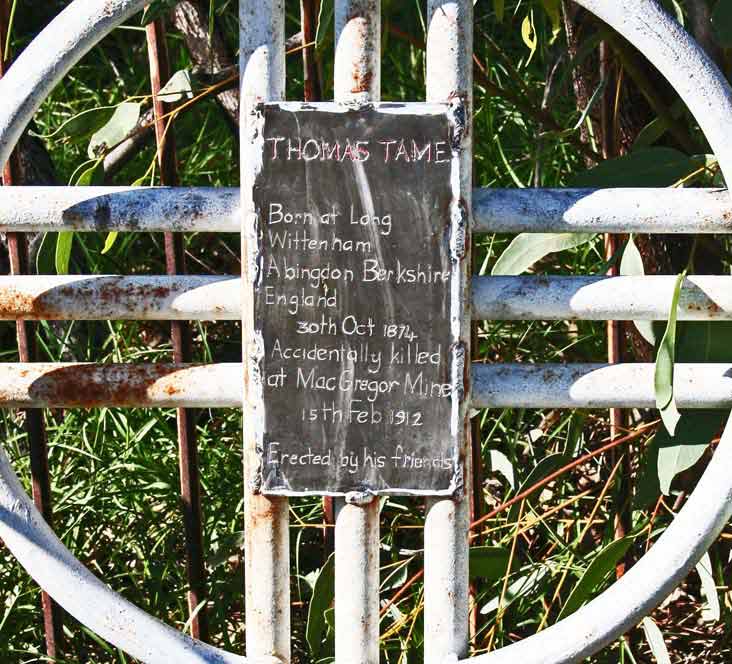 THOMAS TAME
Born at Long
Wittenham
Abingdon Berkshire
England
30th Oct 1874
Accidentally killed
at MacGregor Mine
15th Feb 1912
Erected by his friends